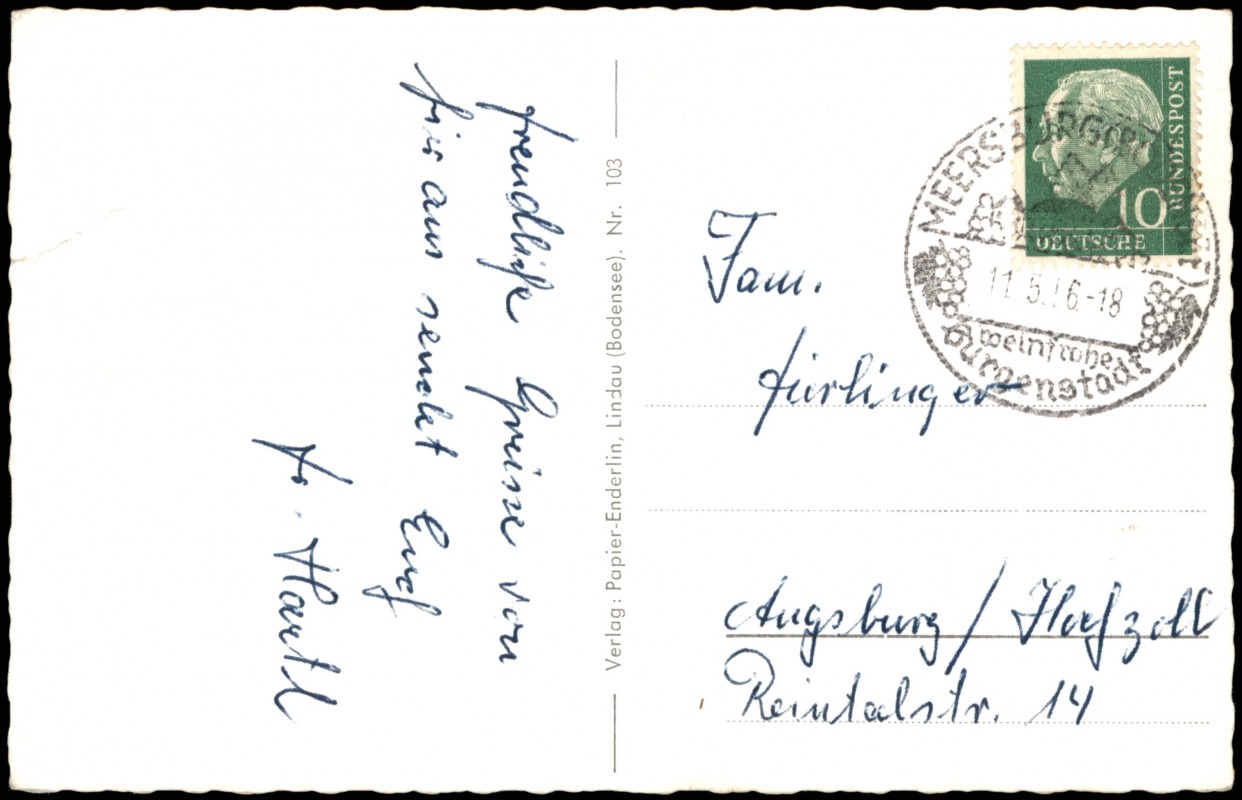 freudliche Grüsse von
hier aus sendet Euch
Fr. Hartl
Verlag: Papier-Enderlin, Lindau (Bodensee). Nr. 103
DEUTSCHE
BUNDESPOST
10
MEERSBURG
11.5.  6.-18
weinfrohe
Burgenstadt
Fam.
Fürlinger
Augsburg / Hochzoll
Reintalstr. 14